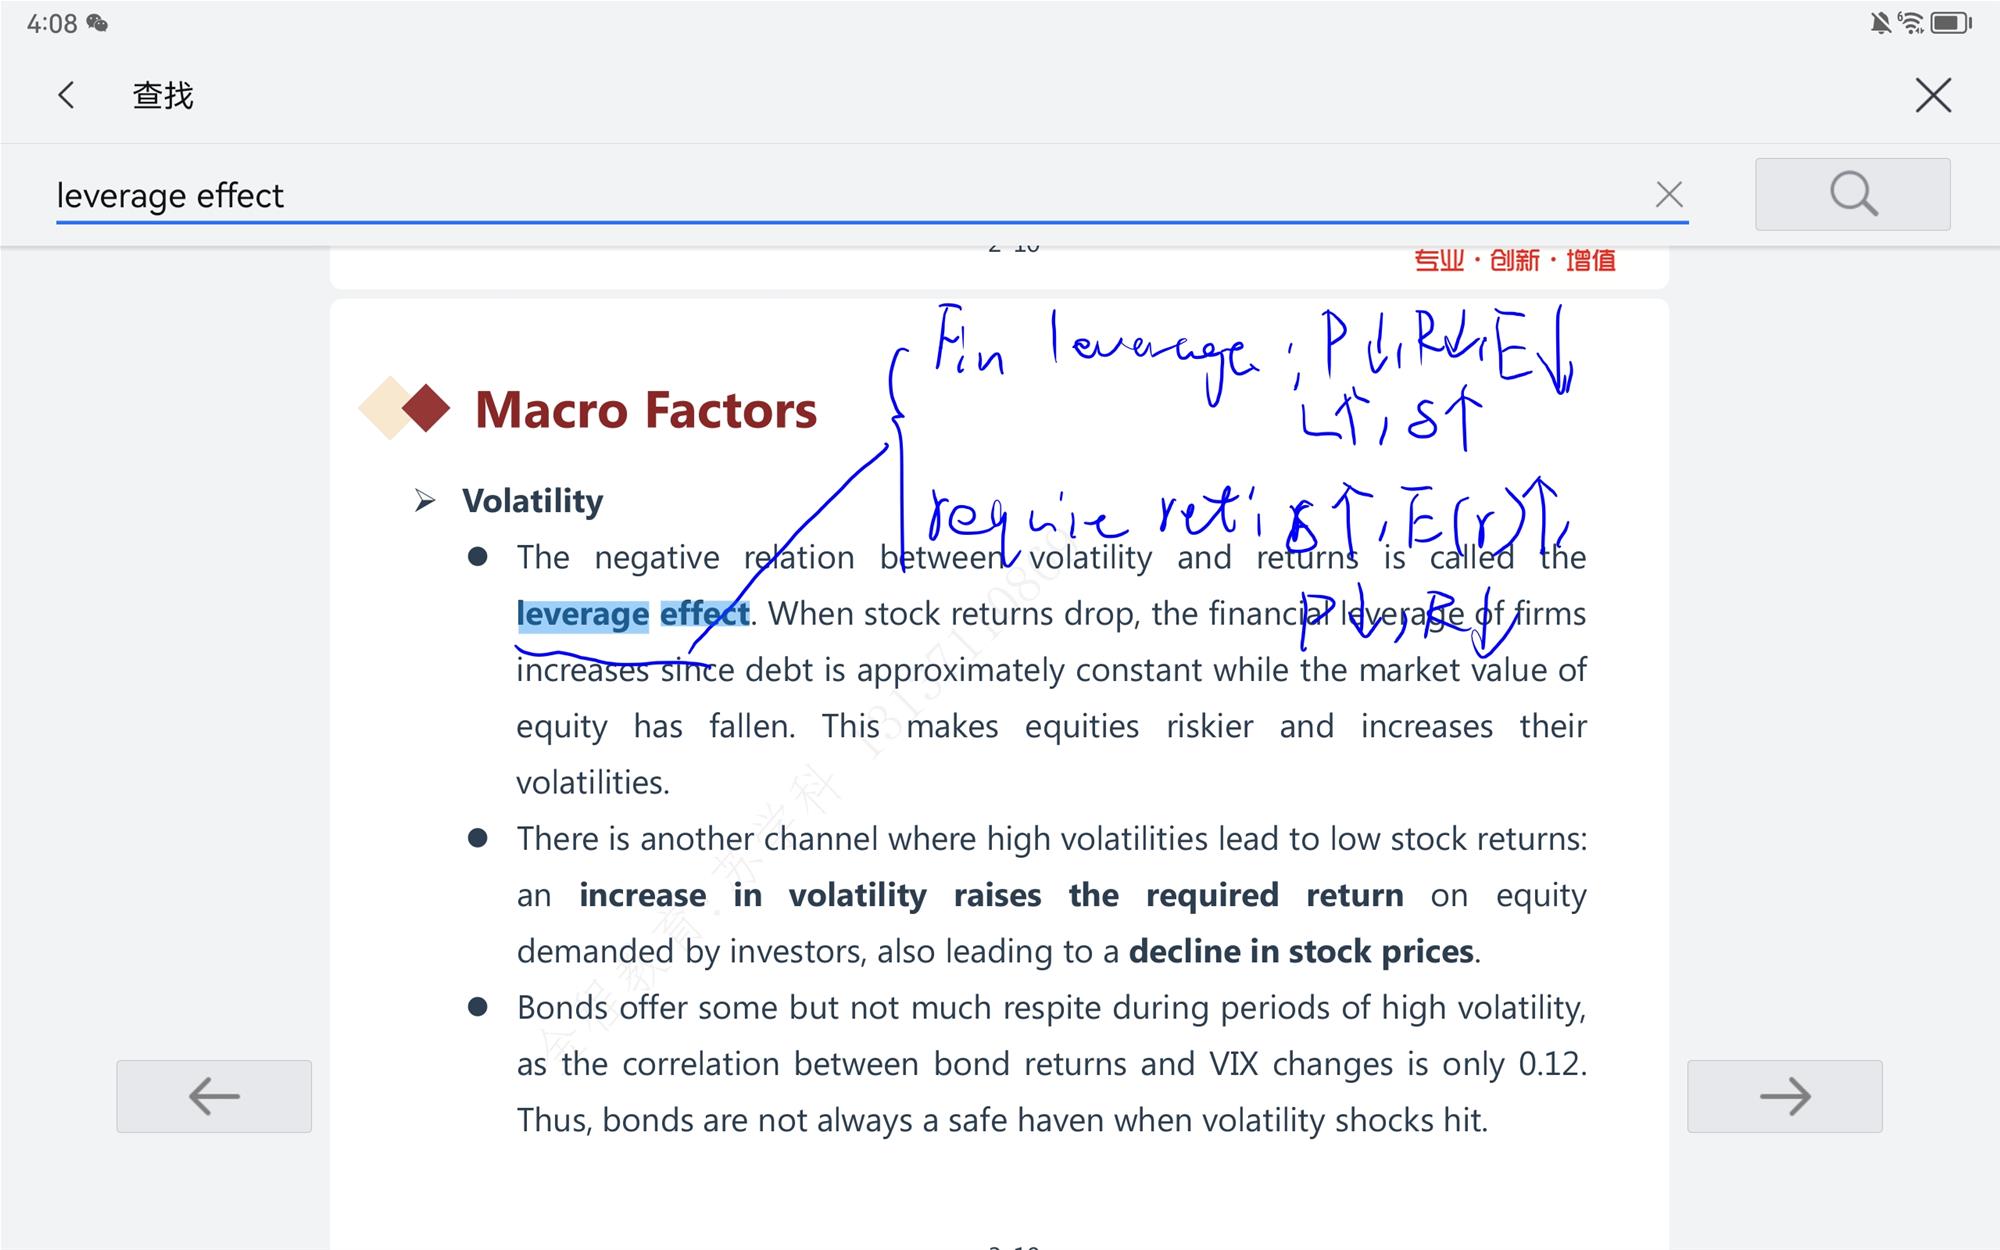 4:08
查找
leverage effect
2-10
专业·创新·增值
Fin leverage: P↓, R↓, E↓,
L↑, δ↑
Macro Factors
require ret: δ↑, E(r)↑,
P↓, R↓
Volatility
The negative relation between volatility and returns is called the
leverage effect. When stock returns drop, the financial leverage of firms
increases since debt is approximately constant while the market value of
equity has fallen. This makes equities riskier and increases their
volatilities.
There is another channel where high volatilities lead to low stock returns:
an increase in volatility raises the required return on equity
demanded by investors, also leading to a decline in stock prices.
Bonds offer some but not much respite during periods of high volatility,
as the correlation between bond returns and VIX changes is only 0.12.
Thus, bonds are not always a safe haven when volatility shocks hit.